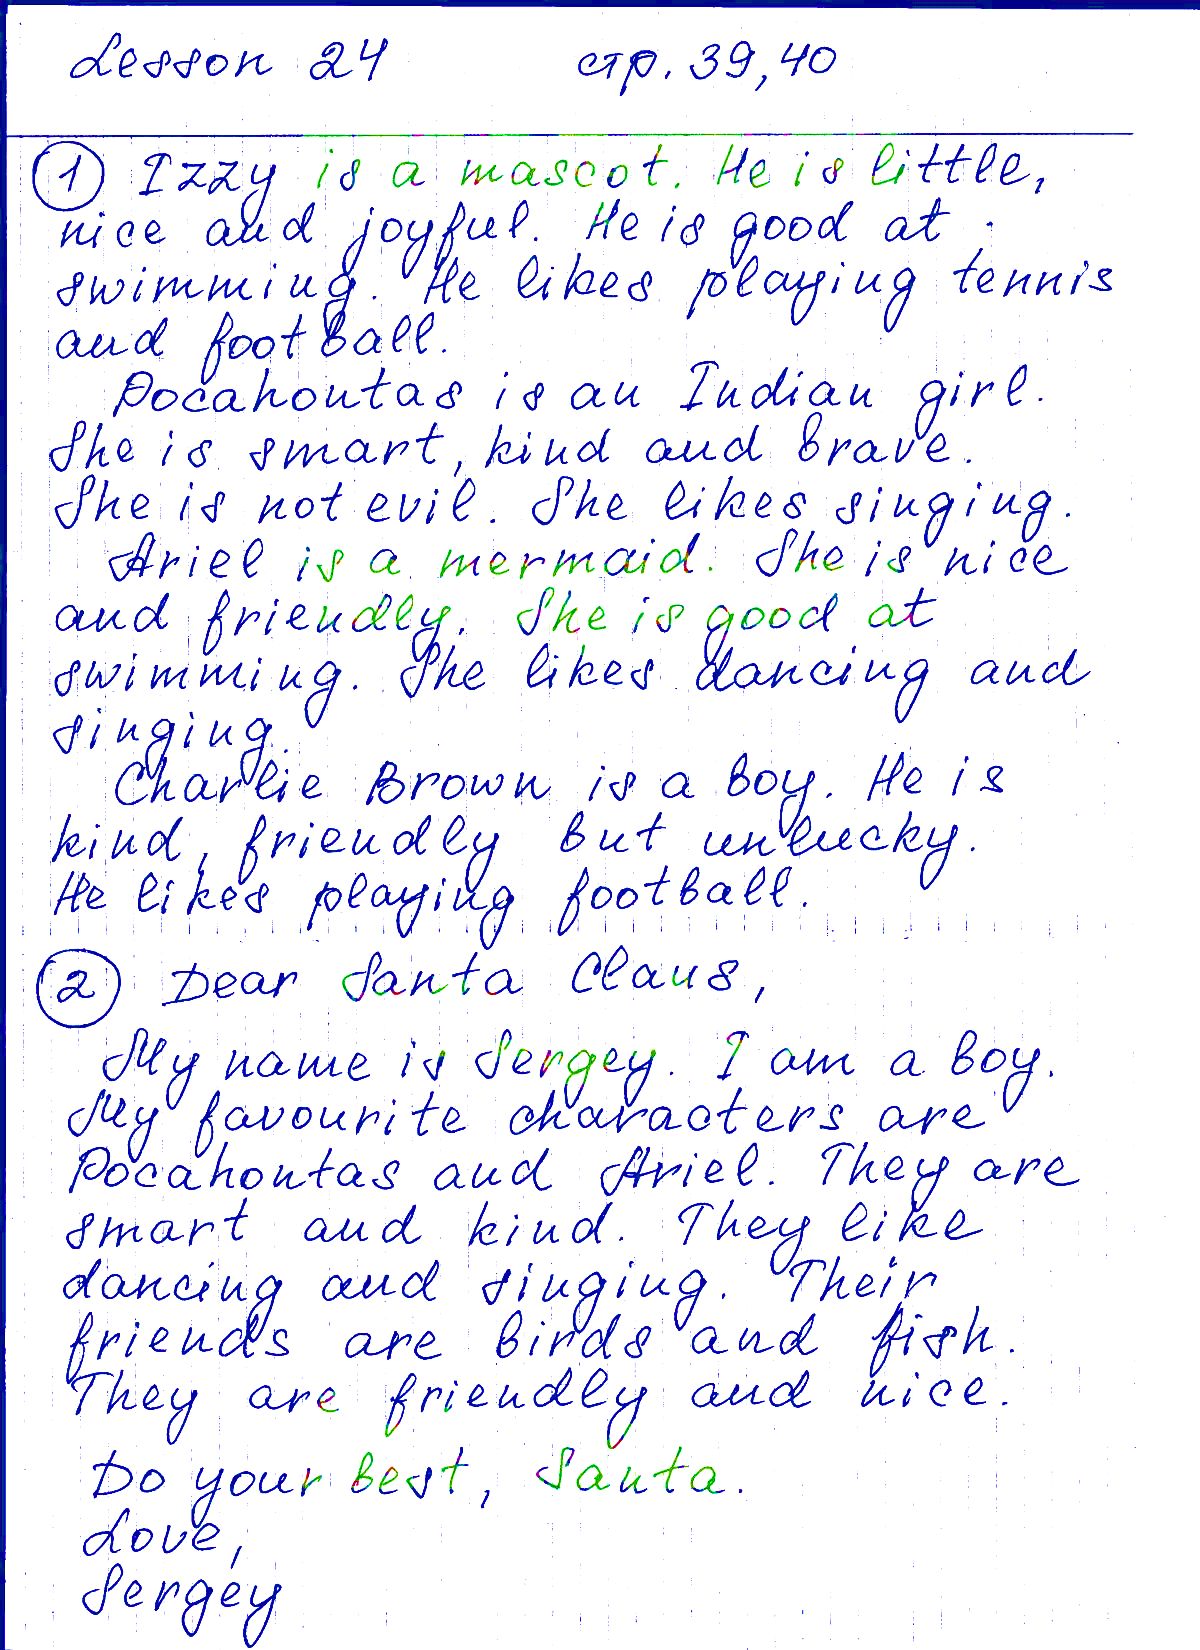 Lesson 24 стр. 39,40
1 Izzy is a mascot. He is little,
nice and joyful. He is good at
swimming. He likes playing tennis
and football.
Pocahontas is an Indian girl.
She is smart, kind and brave.
She is not evil. She likes singing.
Ariel is a mermaid. She is nice
and friendly. She is good at
swimming. She likes dancing and
singing.
Charlie Brown is a boy. He is
kind, friendly but unlucky.
He likes playing football.
2 Dear Santa Claus,
My name is Sergey. I am a boy.
My favourite characters are
Pocahontas and Ariel. They are
smart and kind. They like
dancing and singing. Their
friends are birds and fish.
They are friendly and nice.
Do your best, Santa.
Love,
Sergey